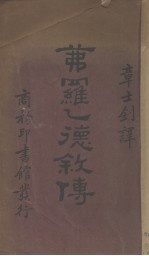 章士釗譯
茀羅乙德敘傳
商務印書館發行